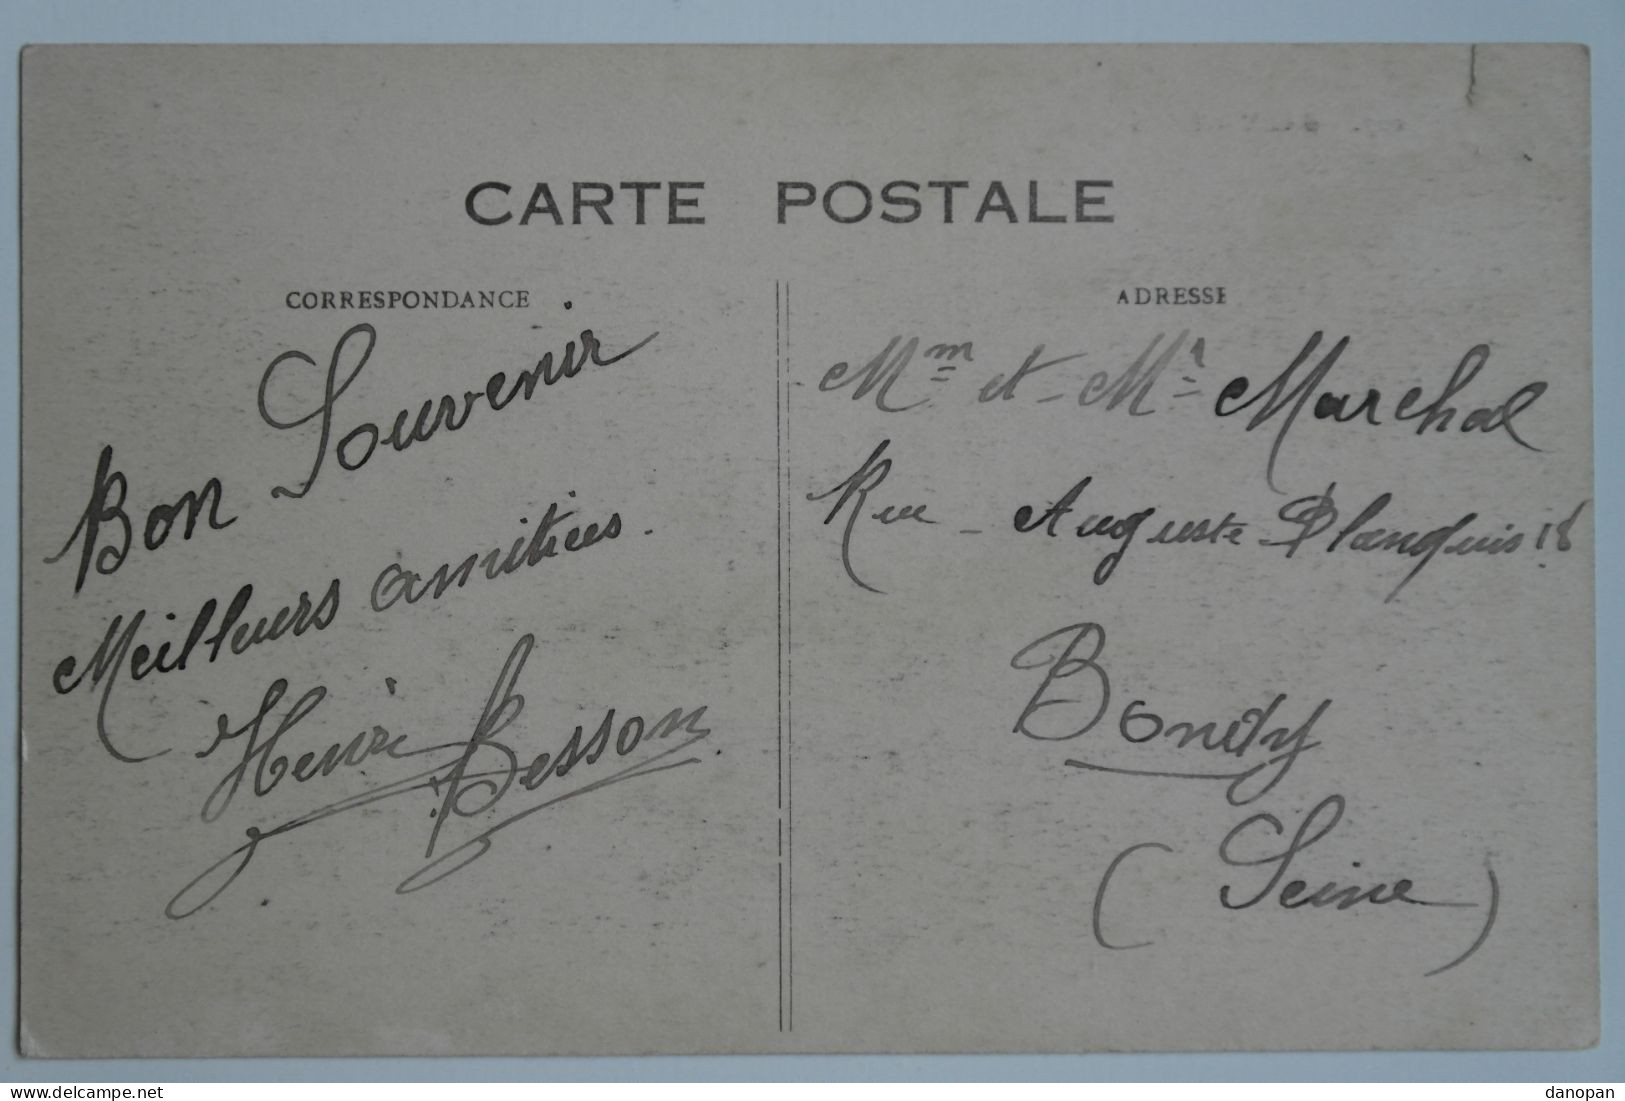 CARTE POSTALE
CORRESPONDANCE
Bon Souvenir
Meilleurs amitiées.
Henri Besson
ADRESSE
Mm et Mr Marchal
Rue Auguste Planquis 18
Bondy
(Seine)
delcampe.net
danopan